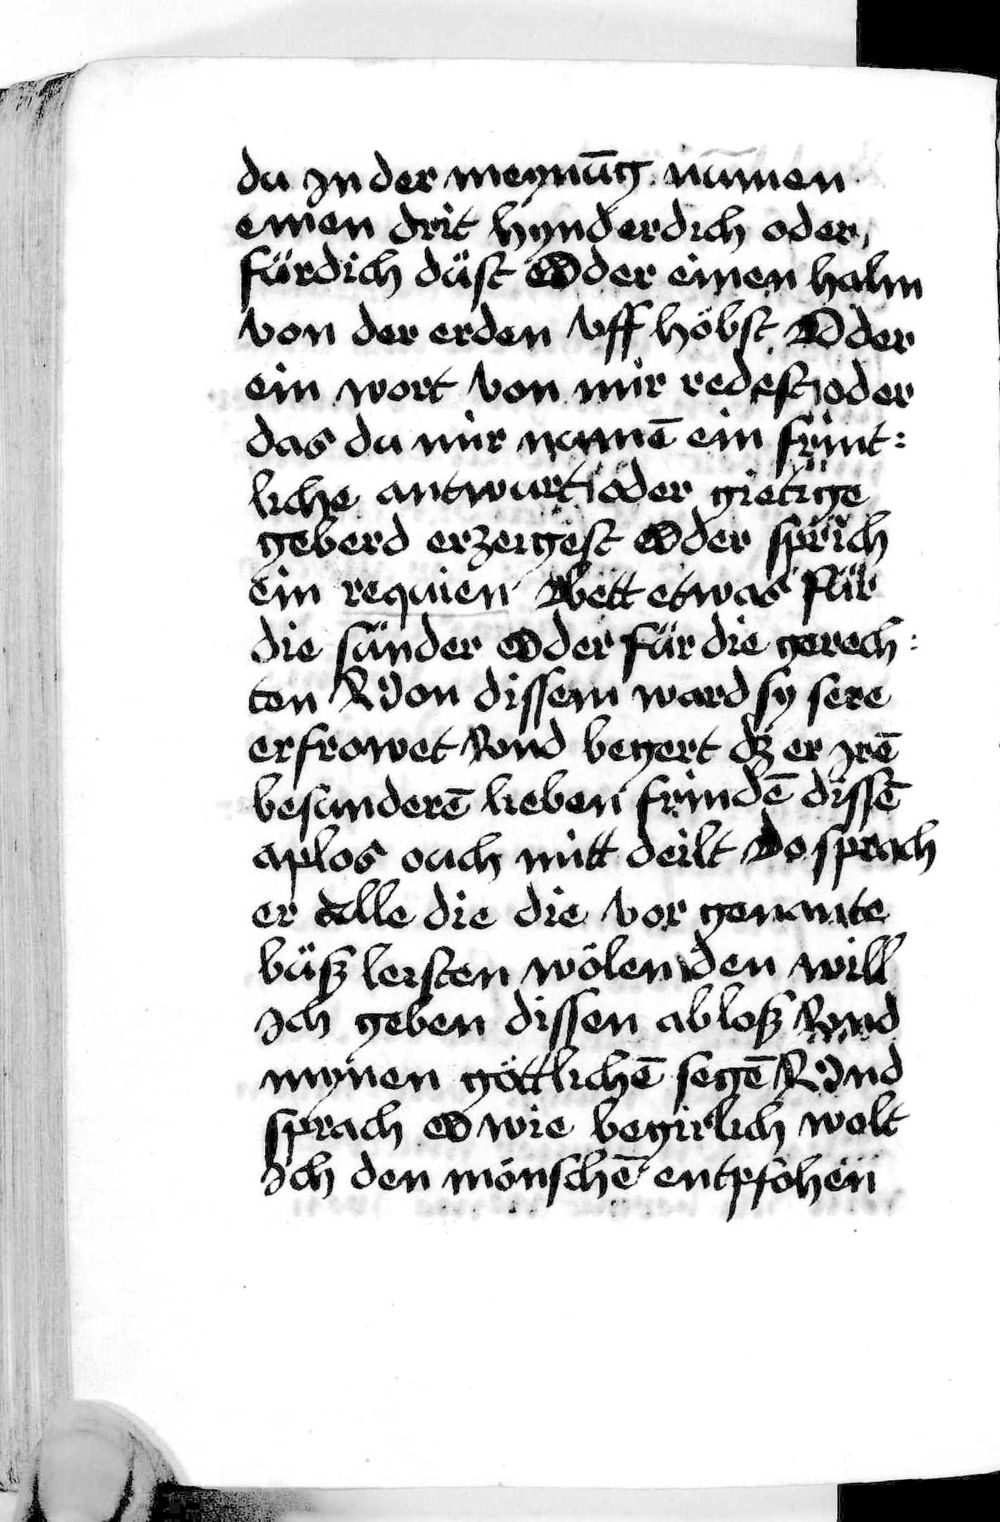 du Jn der meynūg nūmen
einen drit hÿnder dich oder
für dich düst Oder einen halm
von der erden vff höbst Oder
ein wort von mir redest oder
das du mir numē ein frünt:
liche antwürt oder gietige
geberd erzeigest Oder sprich
ein requien Bett etwas für
die sünder Oder für die gerech:
ten Von dissem ward sy sere
erfrowet Vnd begert dz er Jrē
besunderē lieben fründē dissē
aplos ouch mitt deilt Do sprach
er Alle die die vor genante
büsz leisten wölen den will
Jch geben dissen ablosz Vnd
mynen göttlichē segē Vnd
sprach O wie begirlich wolt
Jch den mönschē entpfohen